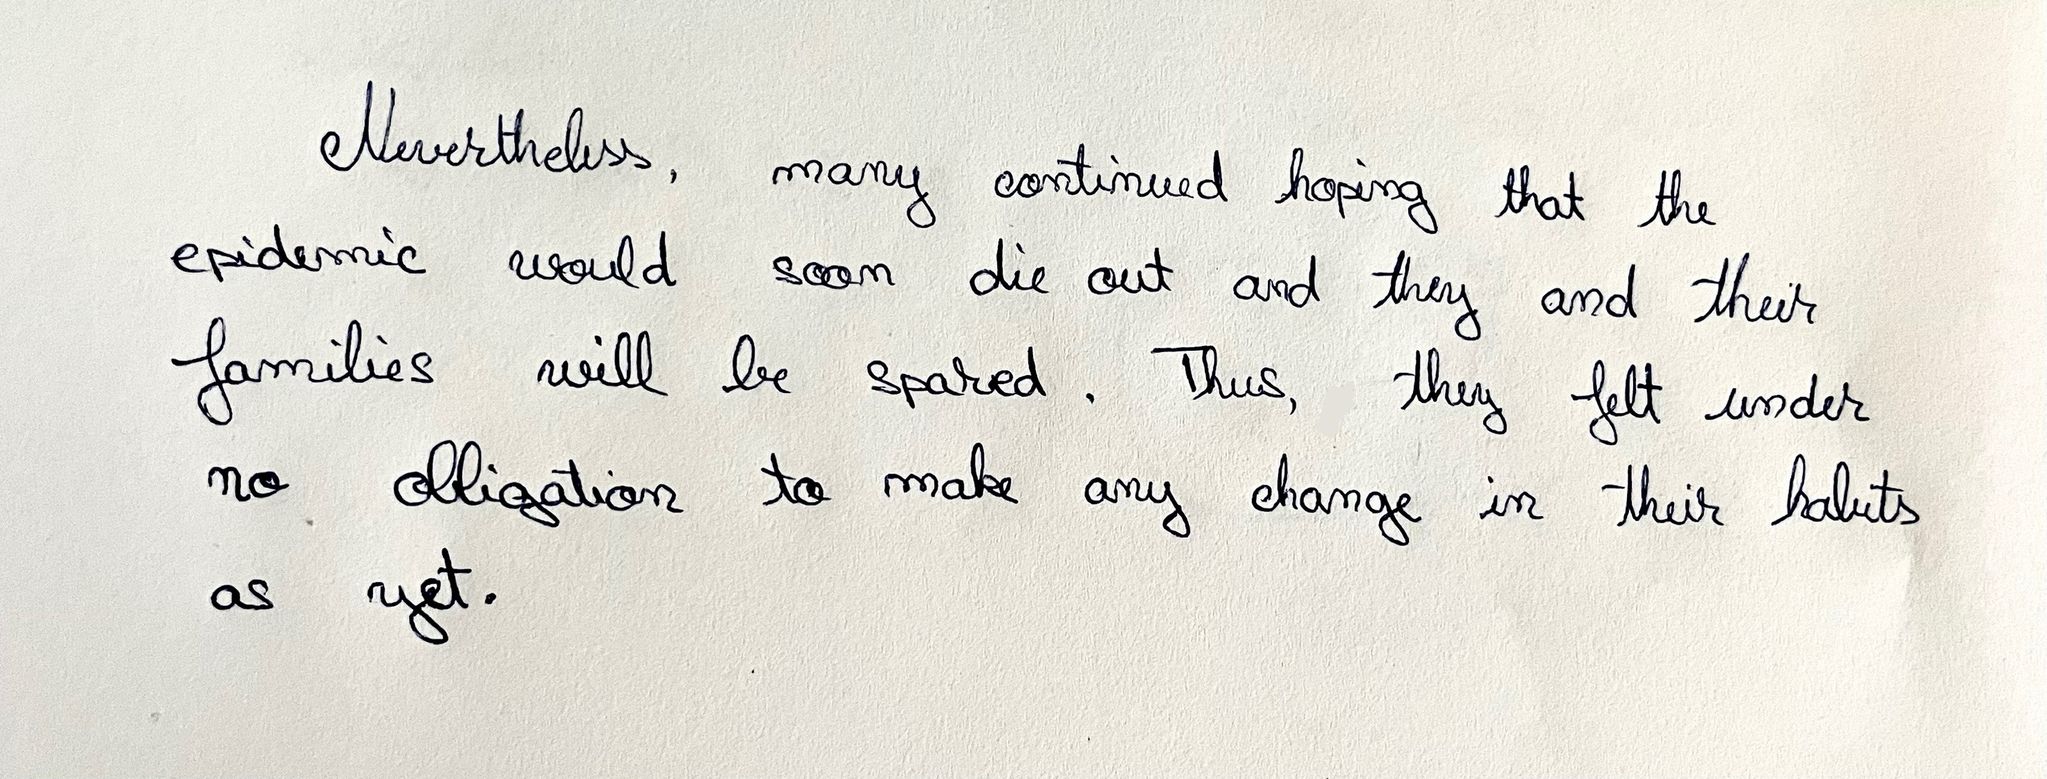 Nevertheless, many continued hoping that the
epidemic would soon die out and they and their
families will be spared. Thus, they felt under
no obligation to make any change in their habits
as yet.